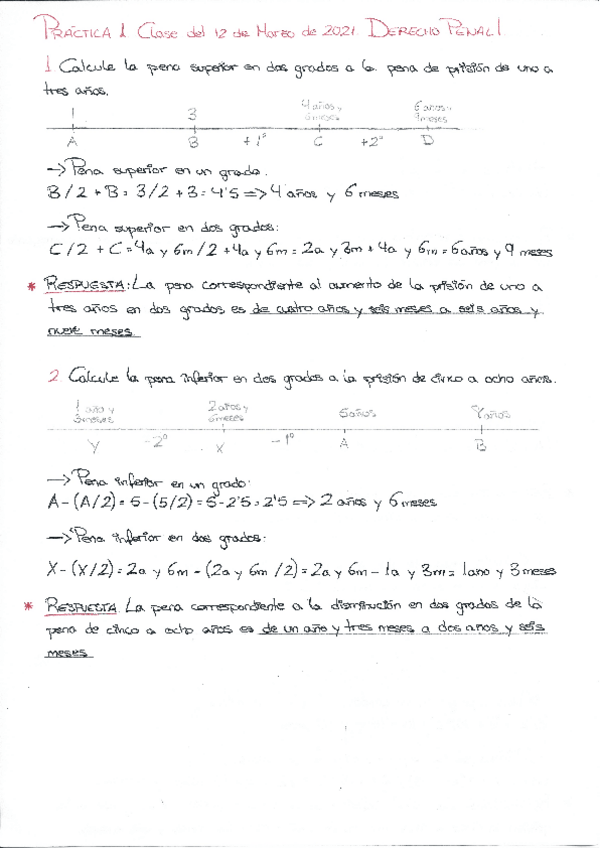 PRÁCTICA 1. Clase del 12 de Marzo de 2021. DERECHO PENAL I
1. Calcule la pena superior en dos grados a la pena de prisión de uno a
tres años.
1 3 4 años y 6 meses 6 años y 9 meses
A B +1º C +2º D
→ Pena superior en un grado.
B/2 + B = 3/2 + 3 = 4'5 => 4 años y 6 meses
→ Pena superior en dos grados:
C/2 + C = 4a y 6m/2 + 4a y 6m = 2a y 3m + 4a y 6m = 6 años y 9 meses
* RESPUESTA: La pena correspondiente al aumento de la prisión de uno a
tres años en dos grados es de cuatro años y seis meses a seis años y
nueve meses
2. Calcule la pena inferior en dos grados a la prisión de cinco a ocho años.
1 año y 3 meses 2 años y 6 meses 5 años años
Y -2º X -1º A B
→ Pena inferior en un grado:
A-(A/2) = 5-(5/2) = 5-2'5 = 2'5 => 2 años y 6 meses
→ Pena inferior en dos grados:
X-(X/2) = 2a y 6m - (2a y 6m/2) = 2a y 6m - 1a y 3m = 1 ano y 3 meses
* RESPUESTA. La pena correspondiente a la disminución en dos grados de la
pena de cinco a ocho años es de un año y tres meses a dos años y seis
meses